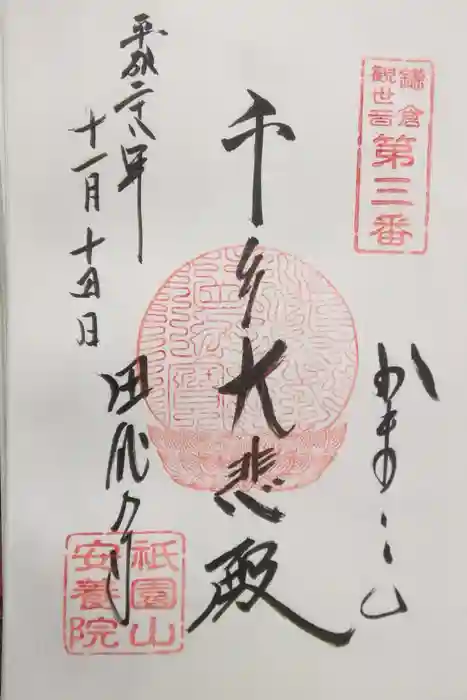 鎌倉
観世音
第三番
かまくら
千手大悲殿
平成二十八年
十一月十五日
田代寺
祇園山
安養院